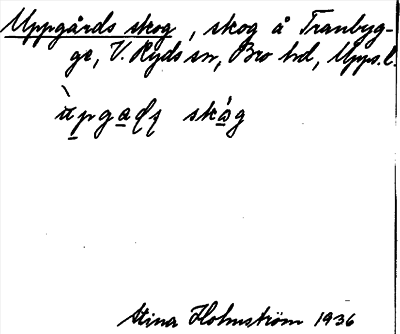 Uppgårds skog, skog å Tranbyg-
ge, V. Ryds sn, Bro hd, Upps. l.
skog
Stina Holmström 1936